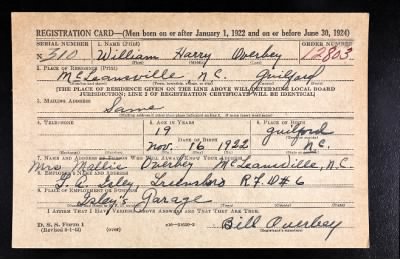 REGISTRATION CARD—(Men born on or after January 1, 1922 and on or before June 30, 1924)
SERIAL NUMBER 1. NAME (Print) ORDER NUMBER
N 310 William Harry Overbey 12803
(First) (Middle) (Last)
2. PLACE OF RESIDENCE (Print)
McLeansville, N.C. Guilford
[THE PLACE OF RESIDENCE GIVEN ON THE LINE ABOVE WILL DETERMINE LOCAL BOARD
JURISDICTION; LINE 2 OF REGISTRATION CERTIFICATE WILL BE IDENTICAL]
3. MAILING ADDRESS
Same
4. TELEPHONE 5. AGE IN YEARS 6. PLACE OF BIRTH
19 Guilford
DATE OF BIRTH
Nov. 16 1922 N.C.
7. NAME AND ADDRESS OF PERSON WHO WILL ALWAYS KNOW YOUR ADDRESS
Mrs Mallie Overbey McLeansville, N.C.
8. EMPLOYER'S NAME AND ADDRESS
Isley, Greensboro R.F.D #6
9. PLACE OF EMPLOYMENT OR BUSINESS
Isley's Garage
I AFFIRM THAT I HAVE VERIFIED ABOVE ANSWERS AND THAT THEY ARE TRUE.
D. S. S. Form 1 Bill Overbey
(over) (Registrant's signature)